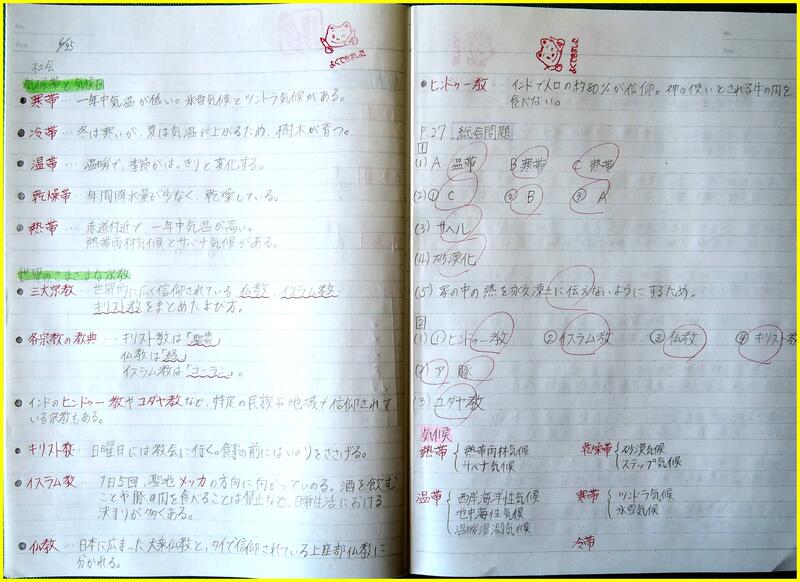 6/25
よくできました
社会
気候帯と気候区
寒帯…一年中気温が低い。氷雪気候とツンドラ気候がある。
冷帯…冬は寒いが、夏は気温が上がるため、樹木が育つ。
温帯…温暖で、季節がはっきりと変化する。
乾燥帯…年間降水量が少なく、乾燥している。
熱帯…赤道付近で、一年中気温が高い。
熱帯雨林気候とサバナ気候がある。
世界のさまざまな宗教
三大宗教…世界的に広く信仰されている仏教、イスラム教、
キリスト教をまとめたよび方。
各宗教の教典…キリスト教は「聖書」
仏教は「経」
イスラム教は「コーラン」。
インドのヒンドゥー教やユダヤ教など、特定の民族や地域で信仰されて
いる宗教もある。
キリスト教…日曜日には教会に行く。食事の前にはいのりをささげる。
イスラム教…1日5回、聖地メッカの方向に向かっていのる。酒を飲む
ことや豚の肉を食べることは禁止など、日常生活における
決まりが多くある。
仏教…日本に広まった大乗仏教と、タイで信仰されている上座部仏教に
分かれる。
よくできました
ヒンドゥー教…インドで人口の約80%が信仰。神の使いとされる牛の肉を
食べない。
P.27 総合問題
1
(1) A 温帯 B 寒帯 C 熱帯
(2) ① C ② B ③ A
(3) サヘル
(4) 砂漠化
(5) 家の中の熱を永久凍土に伝えないようにするため。
2
(1) ①ヒンドゥー教 ②イスラム教 ③仏教 ④キリスト教
(2) ア 豚
(3) ユダヤ教
気候
熱帯 熱帯雨林気候 サバナ気候
乾燥帯 砂漠気候 ステップ気候
温帯 西岸海洋性気候 地中海性気候 温暖湿潤気候
寒帯 ツンドラ気候 氷雪気候
冷帯